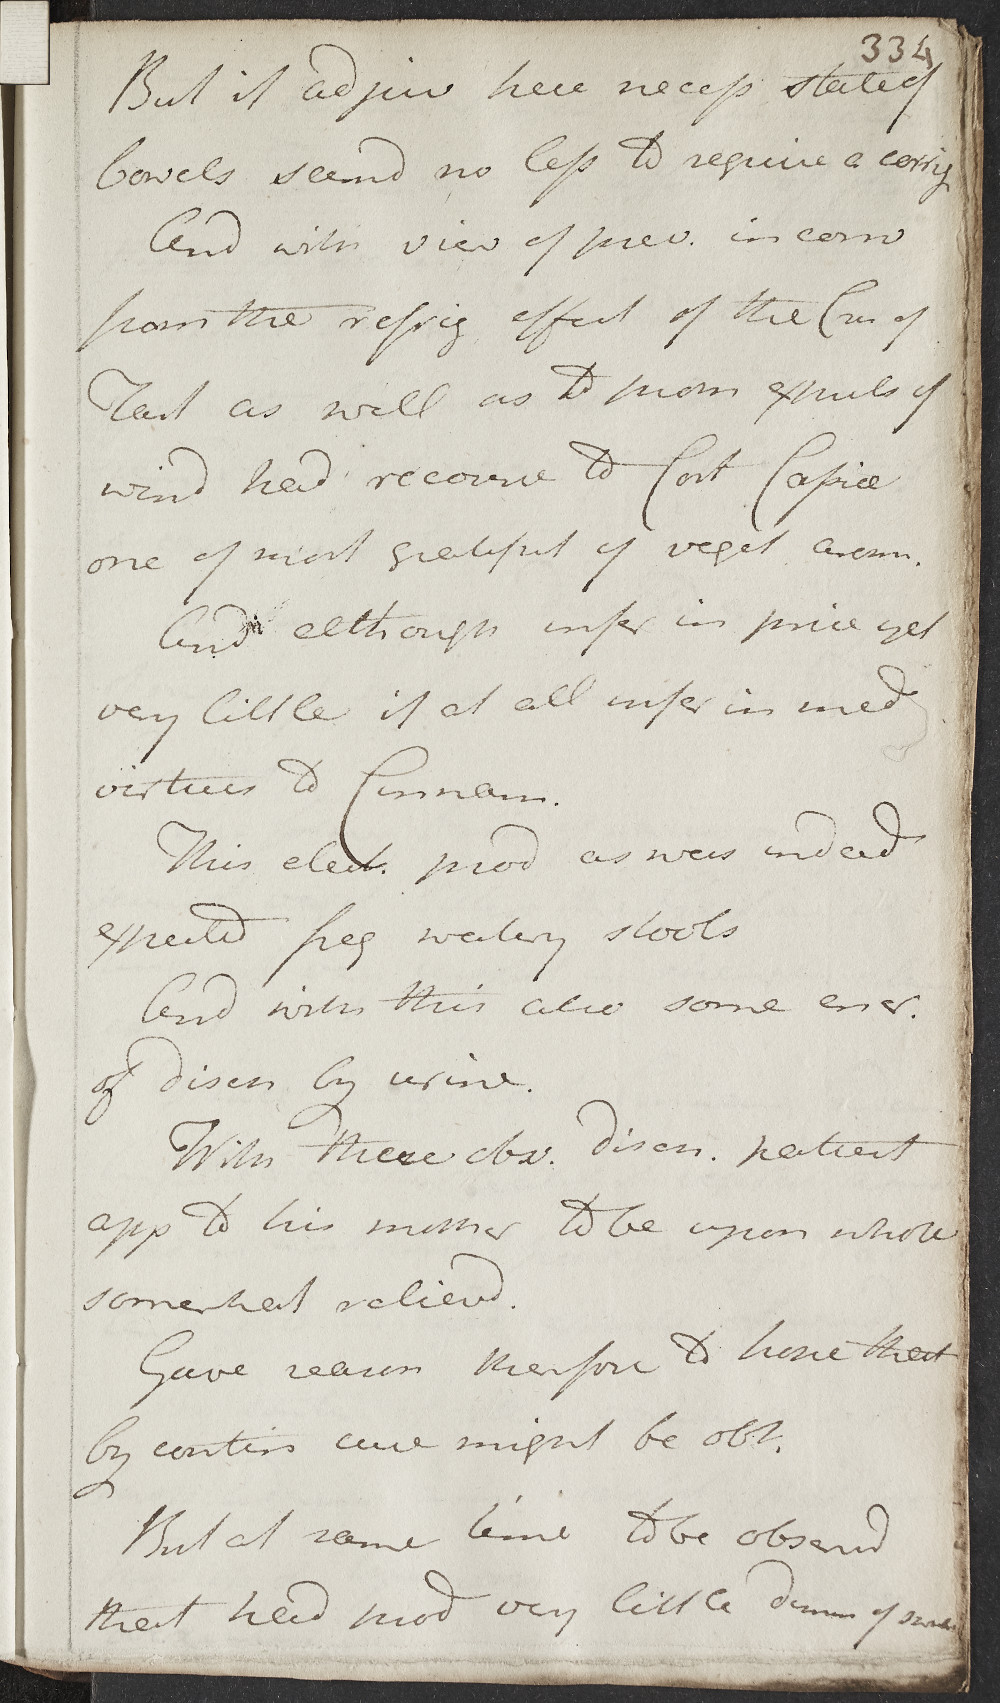 334
But if adjuv here necess state of
bowels seemd no less to require a corrig
And with view of prev. incon
from the refrig effect of the Crem of
Tart as well as to prom expuls of
wind had recourse to Cort Cassiæ
one of most grateful of veget arom.
And although infer in price yet
very little if at all infer in med
virtues to Cinnam.
This elect. prod as was indeed
expected freq watery stools
And with this also some
of disch by urine.
With these obv. disch. patient
app to his mother to be upon whole
somewhat relievd.
Gave reason therefore to hope that
by contin cure might be obt.
But at same time to be observd
that had prod very little dimin of